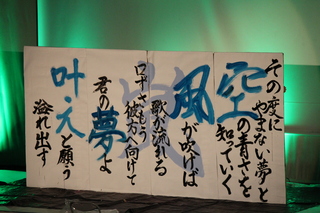 その度に
やまない夢と
空の青さを
知っていく
風が吹けば
歌が流れる
口ずさもう
彼方へ向けて
君の夢よ
叶えと願う
溢れ出す